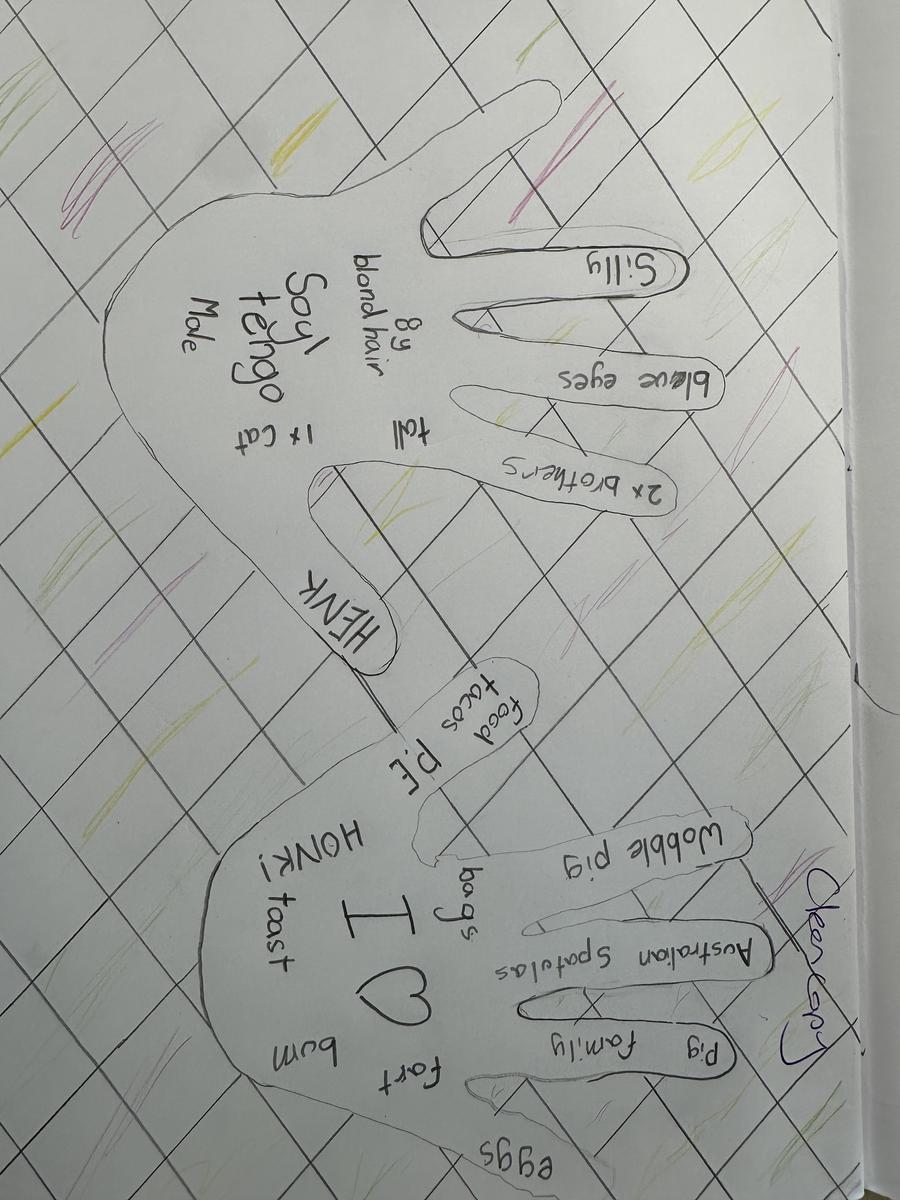 Silly
bleue eyes
2x brothers
HENK
blond hair
8y
tall
Soy\
tengo
1x cat
Male
food
tacos
P.E
Wobble pig
Australian Spatulas
pig family
eggs
bags
I ♡
fart
HONK!
toast
bum
Cleencopy